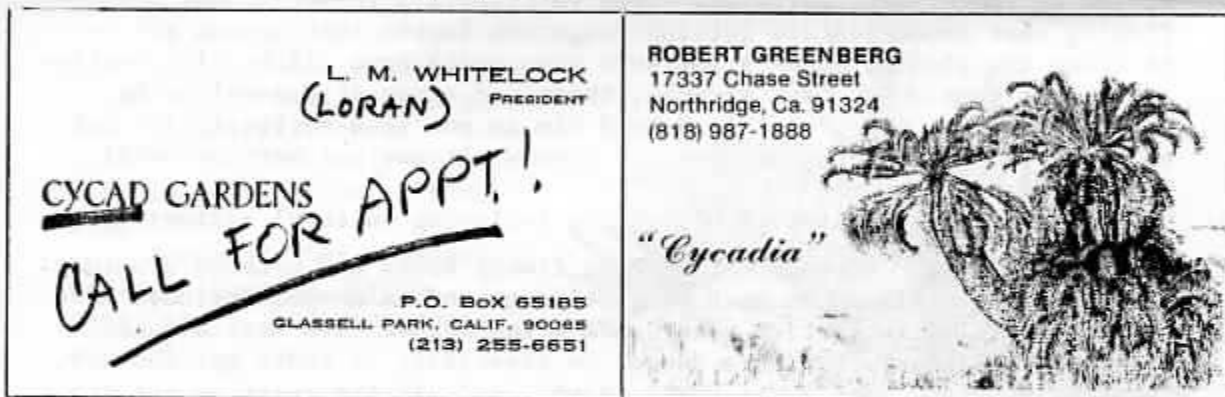 L. M. WHITELOCK
(LORAN) PRESIDENT
CYCAD GARDENS
CALL FOR APPT.!
P.O. BOX 65185
GLASSELL PARK, CALIF. 90065
(213) 255-6651
ROBERT GREENBERG
17337 Chase Street
Northridge, Ca. 91324
(818) 987-1888
"Cycadia"